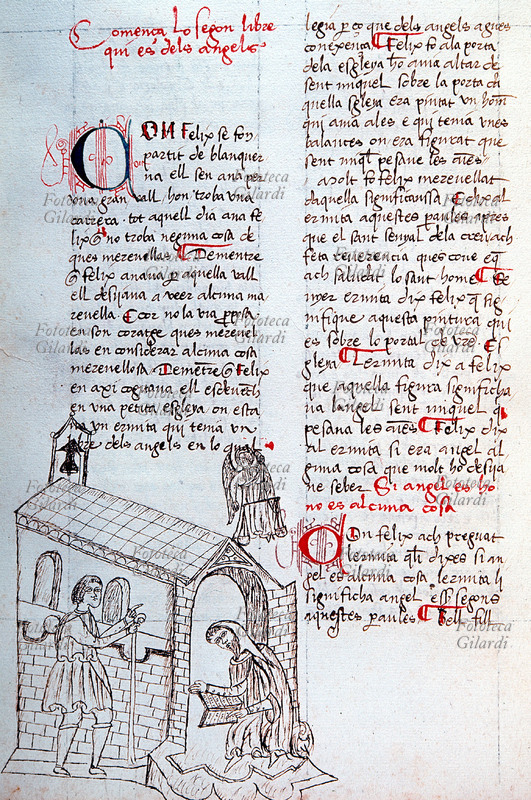 Comença lo segon libre
qui es dels angels
Quan Felix se fon
partit de blanquer
na ell sen ana per
una gran vall hon troba una
carrera tot aquell dia ana fe
lix q no troba neguna cosa de
ques merevellas Dementre
q felix anava per aquella vall
ell desijava a veer alcuna ma
revella Cor no la via posa
en son coratge ques merevel
las en considerar alcuna cosa
merevellosa Demetre q Felix
en axi cogitava ell esdevench
en una petita esgleya on esta
va un ermita qui tenia un
libre dels angels en lo qual
legia per ço que dels angels agues
conexença Felix fo a la porta
dela esgleya ho avia altar de
sent miquel sobre la porta da
quella sgleya era pintat un hom
qui avia ales e qui tenia unes
balances on era figurat que
sent miql pesave les aies
Molt fo felix merevellat
daquella significansa E dix al
ermita aquestes paules apres
que el sant senyal dela creu ach
feta reverencia ques cove e q
ach saludat lo sant home Se
nyer ermita dix felix q sig
nifique aquesta pintura qui
es sobre lo portal de vre es
gleya Lermita dix a felix
que aquella figura significha
va langel sent miquel q
pesava les aies Felix dix
al ermita si era angel al
guna cosa que molt ho desija
ve seber Si angel es ho
no es alcuna cosa
Con felix ach preguat
lermita qli dixes si an
gel es alcuna cosa lermita li
significha angel esser segons
aquestes paules Bell fill
Fototeca
Gilardi